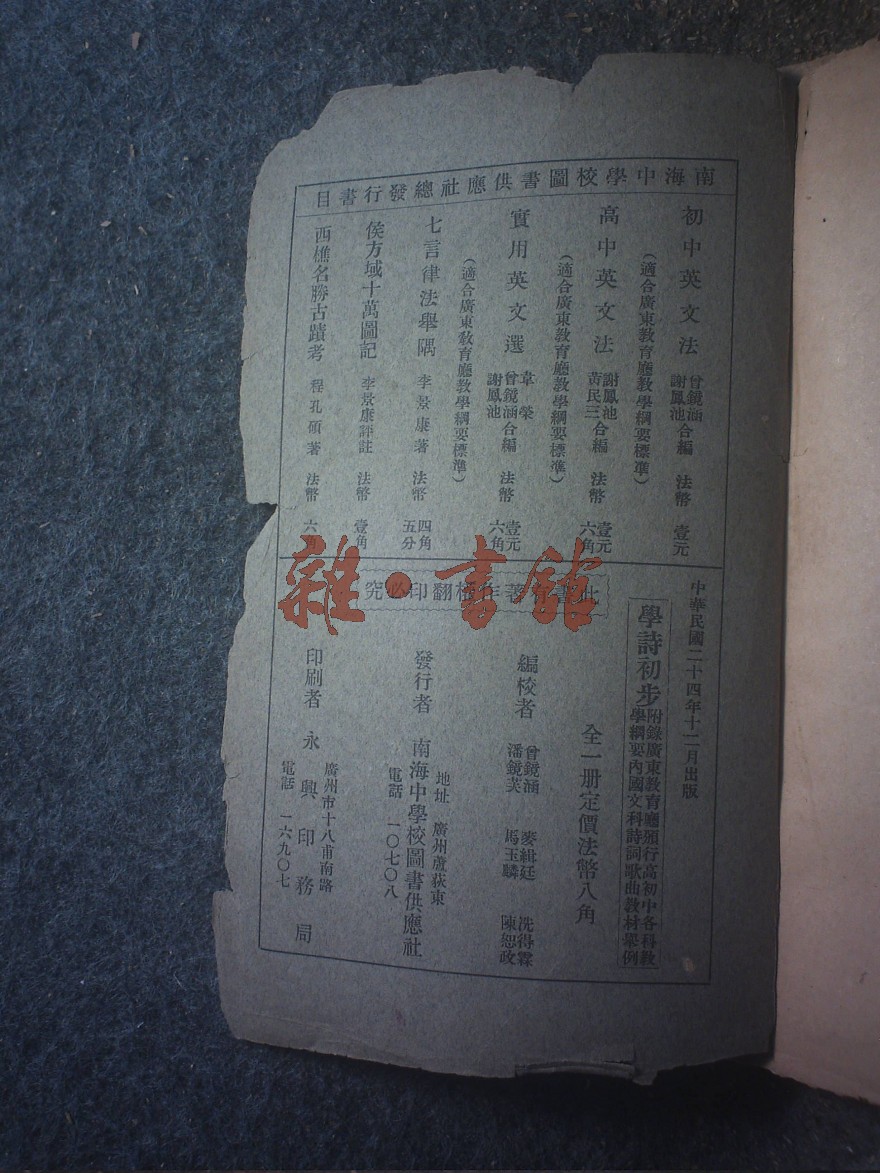 南海中學校圖書供應社總發行書目
初中英文法 曾鏡涵 謝鳳池 合編 法幣 壹元
(適合廣東教育廳教學綱要標準)
高中英文法 謝鳳池 黃民三 合編 法幣 壹元六角
(適合廣東教育廳教學綱要標準)
實用英文選 韋榮 曾鏡涵 謝鳳池 合編 法幣 壹元六角
(適合廣東教育廳教學綱要標準)
七言律法舉隅 李景康著 法幣 四角五分
侯方域十萬圖記 李景康評註 法幣 壹角
西樵名勝古蹟考 程孔碩著 法幣 六角
中華民國二十四年十二月出版
學詩初步
附錄廣東教育廳頒行高初中各科教
學綱要內國文科詩詞歌曲教材舉例
全一册定價法幣八角
此書有著作權翻印必究
編校者
曾鏡涵 麥緝廷 冼得霖
潘鏡芙 馬玉麟 陳恕政
地址 廣州蘆荻東
發行者 南海中學校圖書供應社
電話 一〇七〇八
廣州市十八甫南路
印刷者 永興印務局
電話 一六九〇七
雜·書館